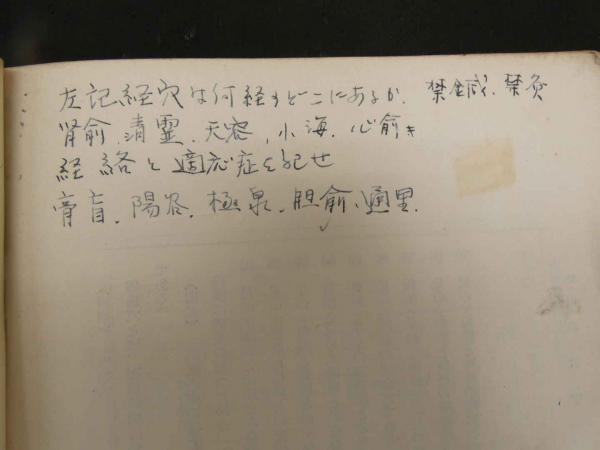 左記経穴は何経のどこにあるか. 禁鍼. 禁灸
肾俞. 清霊. 天容, 小海. 心俞
経絡と適応症を記せ
膏肓. 陽谷. 極泉. 胆俞、通里.